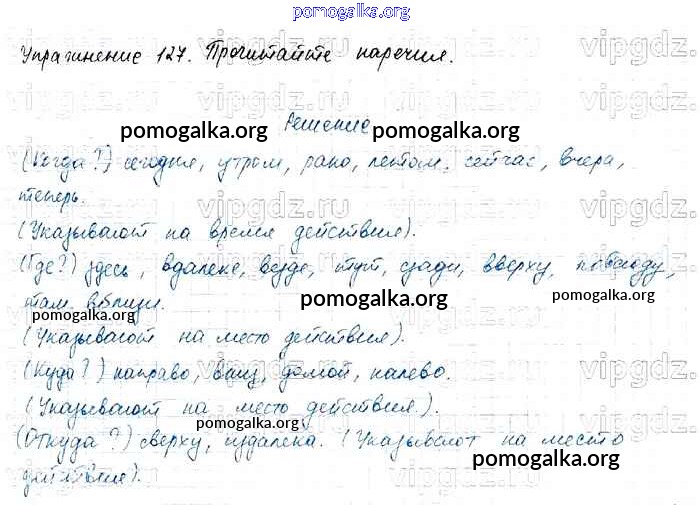 pomogalka.org
Упражнение 127. Прочитайте наречия.
vipgdz.ru vipgdz.ru vipgdz.ru
Решение
pomogalka.org pomogalka.org
(Когда?) сегодня, утром, рано, летом, сейчас, вчера,
теперь.
(Указывают на время действия).
(Где?) здесь, вдалеке, везде, тут, сзади, вверху, повсюду,
там, вблизи.
pomogalka.org pomogalka.org pomogalka.org
(Указывают на место действия).
(Куда?) направо, вниз, домой, налево.
(Указывают на место действия).
pomogalka.org
(Откуда?) сверху, издалека. (Указывают на место
pomogalka.org
действия).